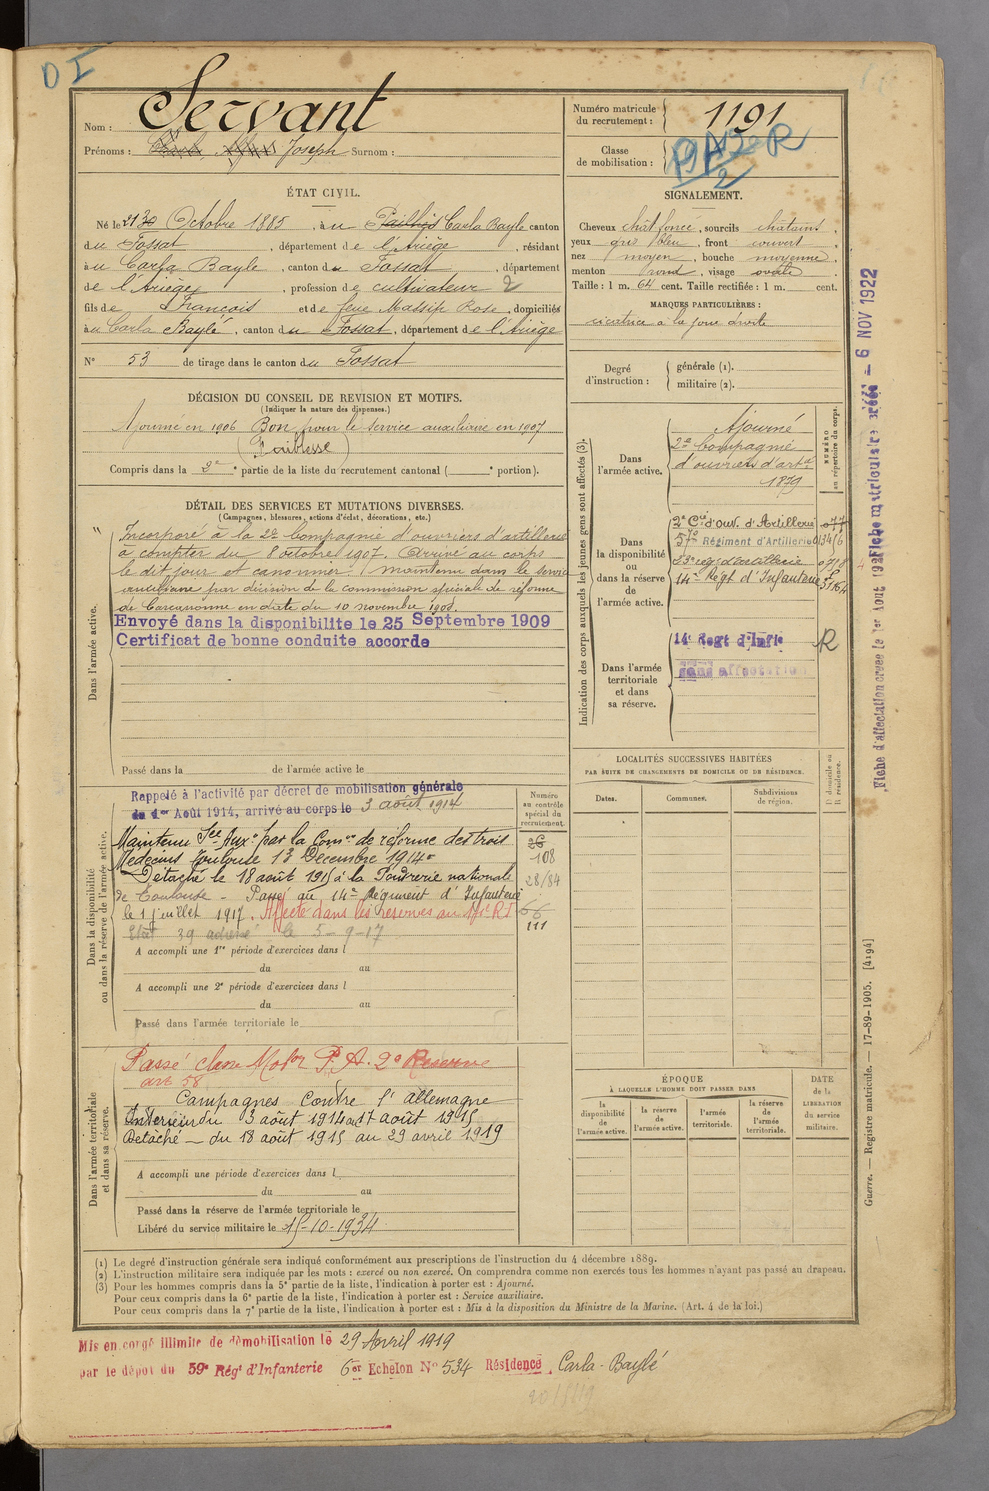 D I
Nom : Servant
Prénoms : Joseph Surnom :
Numéro matricule du recrutement : 1191
Classe de mobilisation :
ÉTAT CIVIL.
Né le 21 30 Octobre 1885, à u Pailhès Carla Bayle canton
du Fossat, département de l'Ariège, résidant
à u Carla Bayle, canton du Fossat, département
de l'Ariège, profession de cultivateur 2
fils de François et de feue Massip Rose, domiciliés
à u Carla Baylé, canton du Fossat, département de l'Ariège
N° 53 de tirage dans le canton du Fossat
SIGNALEMENT.
Cheveux chât foncé, sourcils châtains,
yeux gris bleu, front couvert,
nez moyen, bouche moyenne,
menton rond, visage ovale.
Taille : 1 m. 64 cent. Taille rectifiée : 1 m. cent.
MARQUES PARTICULIÈRES :
cicatrice à la joue droite
Degré d'instruction :
générale (1).
militaire (2).
DÉCISION DU CONSEIL DE REVISION ET MOTIFS.
(Indiquer la nature des dispenses.)
Ajourné en 1906 Bon pour le service auxiliaire en 1907
(Faiblesse)
Compris dans la 2e partie de la liste du recrutement cantonal ( e portion).
DÉTAIL DES SERVICES ET MUTATIONS DIVERSES.
(Campagnes, blessures, actions d'éclat, décorations, etc.)
Dans l'armée active.
Incorporé à la 2e Compagnie d'ouvriers d'artillerie
à compter du 8 octobre 1907. Arrivé au corps
le dit jour et canonnier. Maintenu dans le service
auxiliaire par décision de la commission spéciale de réforme
de Carcassonne en date du 10 novembre 1908.
Envoyé dans la disponibilite le 25 Septembre 1909
Certificat de bonne conduite accorde
Passé dans la de l'armée active le
Indication des corps auxquels les jeunes gens sont affectés (3).
NUMÉRO au répertoire du corps.
Dans l'armée active.
Ajourné
2e Compagnie
d'ouvriers d'arte
1879
Dans la disponibilité ou dans la réserve de l'armée active.
2e Cie d'ouv. d'Artillerie
57e Régiment d'Artillerie
23e rég d'artillerie
14e Régt d'Infanterie
Dans l'armée territoriale et dans sa réserve.
14e Regt d'Infie R
sans affectation
LOCALITÉS SUCCESSIVES HABITÉES
PAR SUITE DE CHANGEMENTS DE DOMICILE OU DE RÉSIDENCE.
Dates.
Communes.
Subdivisions de région.
D domicile ou R résidence.
Dans la disponibilité ou dans la réserve de l'armée active.
Rappelé à l'activité par décret de mobilisation générale
du 1er Août 1914, arrivé au corps le 3 août 1914
Maintenu Sce Auxe par la Comon de réforme des trois
Médecins Toulouse 13 Décembre 1914.
Détaché le 18 août 1915 à la Poudrerie nationale
de Toulouse - Passé au 14e Régiment d'Infanterie
le 1 juillet 1917. Affecté dans les réserves au RI
Etat 39 adressé le 5-9-17
Numéro au contrôle spécial du recrutement.
26
108
28/84
66
111
A accompli une 1re période d'exercices dans l
du au
A accompli une 2e période d'exercices dans l
du au
Passé dans l'armée territoriale le
Dans l'armée territoriale et dans sa réserve.
Passé classe Mobon P. A. 2e Réserve
art 58
Campagnes Contre l'allemagne
Intérieur du 3 août 1914 au 17 août 1915
Détaché — du 18 août 1915 au 29 avril 1919
A accompli une période d'exercices dans l
du au
Passé dans la réserve de l'armée territoriale le
Libéré du service militaire le 15-10-1934
ÉPOQUE
À LAQUELLE L'HOMME DOIT PASSER DANS
la disponibilité de l'armée active.
la réserve de l'armée active.
l'armée territoriale.
la réserve de l'armée territoriale.
DATE de la LIBÉRATION du service militaire.
(1) Le degré d'instruction générale sera indiqué conformément aux prescriptions de l'instruction du 4 décembre 1889.
(2) L'instruction militaire sera indiquée par les mots : exercé ou non exercé. On comprendra comme non exercés tous les hommes n'ayant pas passé au drapeau.
(3) Pour les hommes compris dans la 5e partie de la liste, l'indication à porter est : Ajourné.
Pour ceux compris dans la 6e partie de la liste, l'indication à porter est : Service auxiliaire.
Pour ceux compris dans la 7e partie de la liste, l'indication à porter est : Mis à la disposition du Ministre de la Marine. (Art. 4 de la loi.)
Mis en congé illimité de démobilisation le 29 Avril 1919
par le dépôt du 59e Régt d'Infanterie 6er Echelon N° 534 Résidence Carla-Baylé
Guerre. — Registre matricule. — 17-89-1905. [4194]
Fiche matriculaire créée 6 NOV 1922
Fiche d'affectation créée le 1er Aout 192